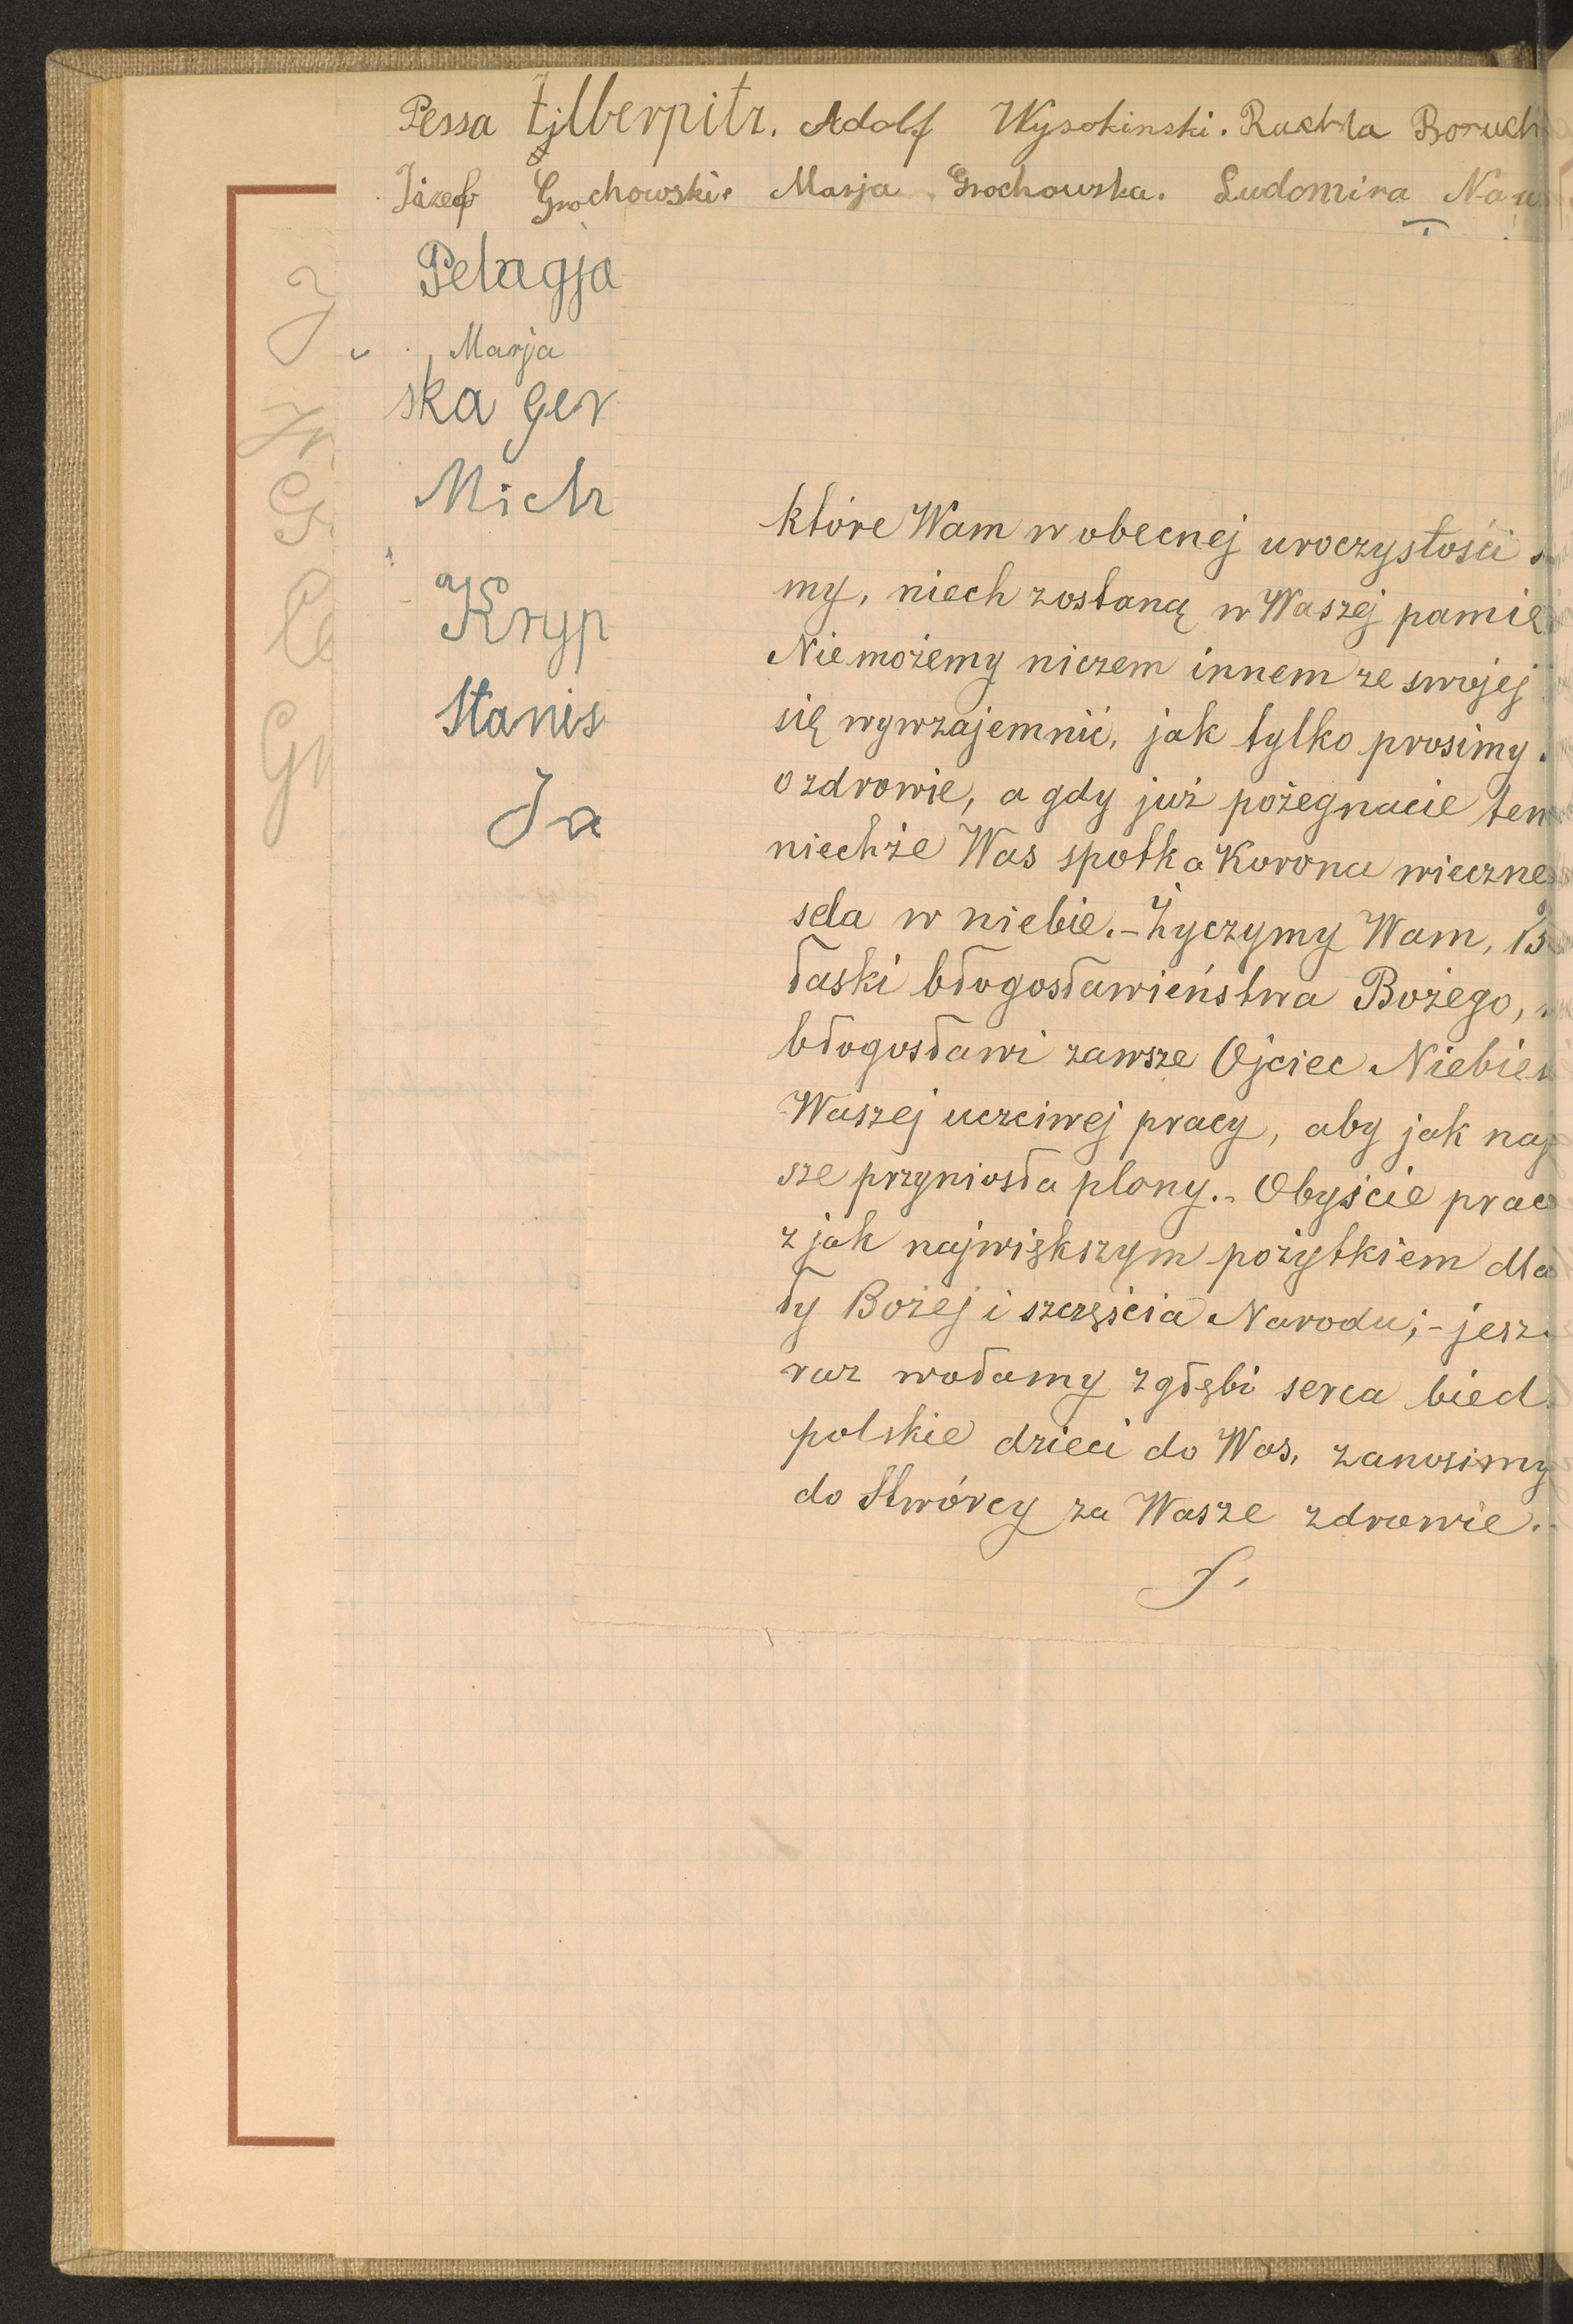 Pessa Żylberpitr. Adolf Wysokinski. Ruchla Boruch
Józef Grochowski. Marja Grochowska. Ludomira Naw
Pelagja
Marja
ska Ger
Mich
Kryp
Stanis
Ja
J
Fr
S
Ce
Gr
które Wam w obecnej uroczystości
my, niech zostaną w Waszej pamię
Nie możemy niczem innem ze swojej
się wywzajemnić, jak tylko prosimy
o zdrowie, a gdy już pożegnacie ten
niechże Was spotka Korona wieczne
sela w niebie.- Życzymy Wam, B
łaski błogosławieństwa Bożego,
błogosławi zawsze Ojciec Niebies
Waszej uczciwej pracy, aby jak naj
sze przyniosła plony.- Obyście prac
z jak największym pożytkiem dla
ły Bożej i szczęścia Narodu;- jesz
raz wołamy z głębi serca bied
polskie dzieci do Was, zanosimy
do Stwórcy za Wasze zdrowie.-